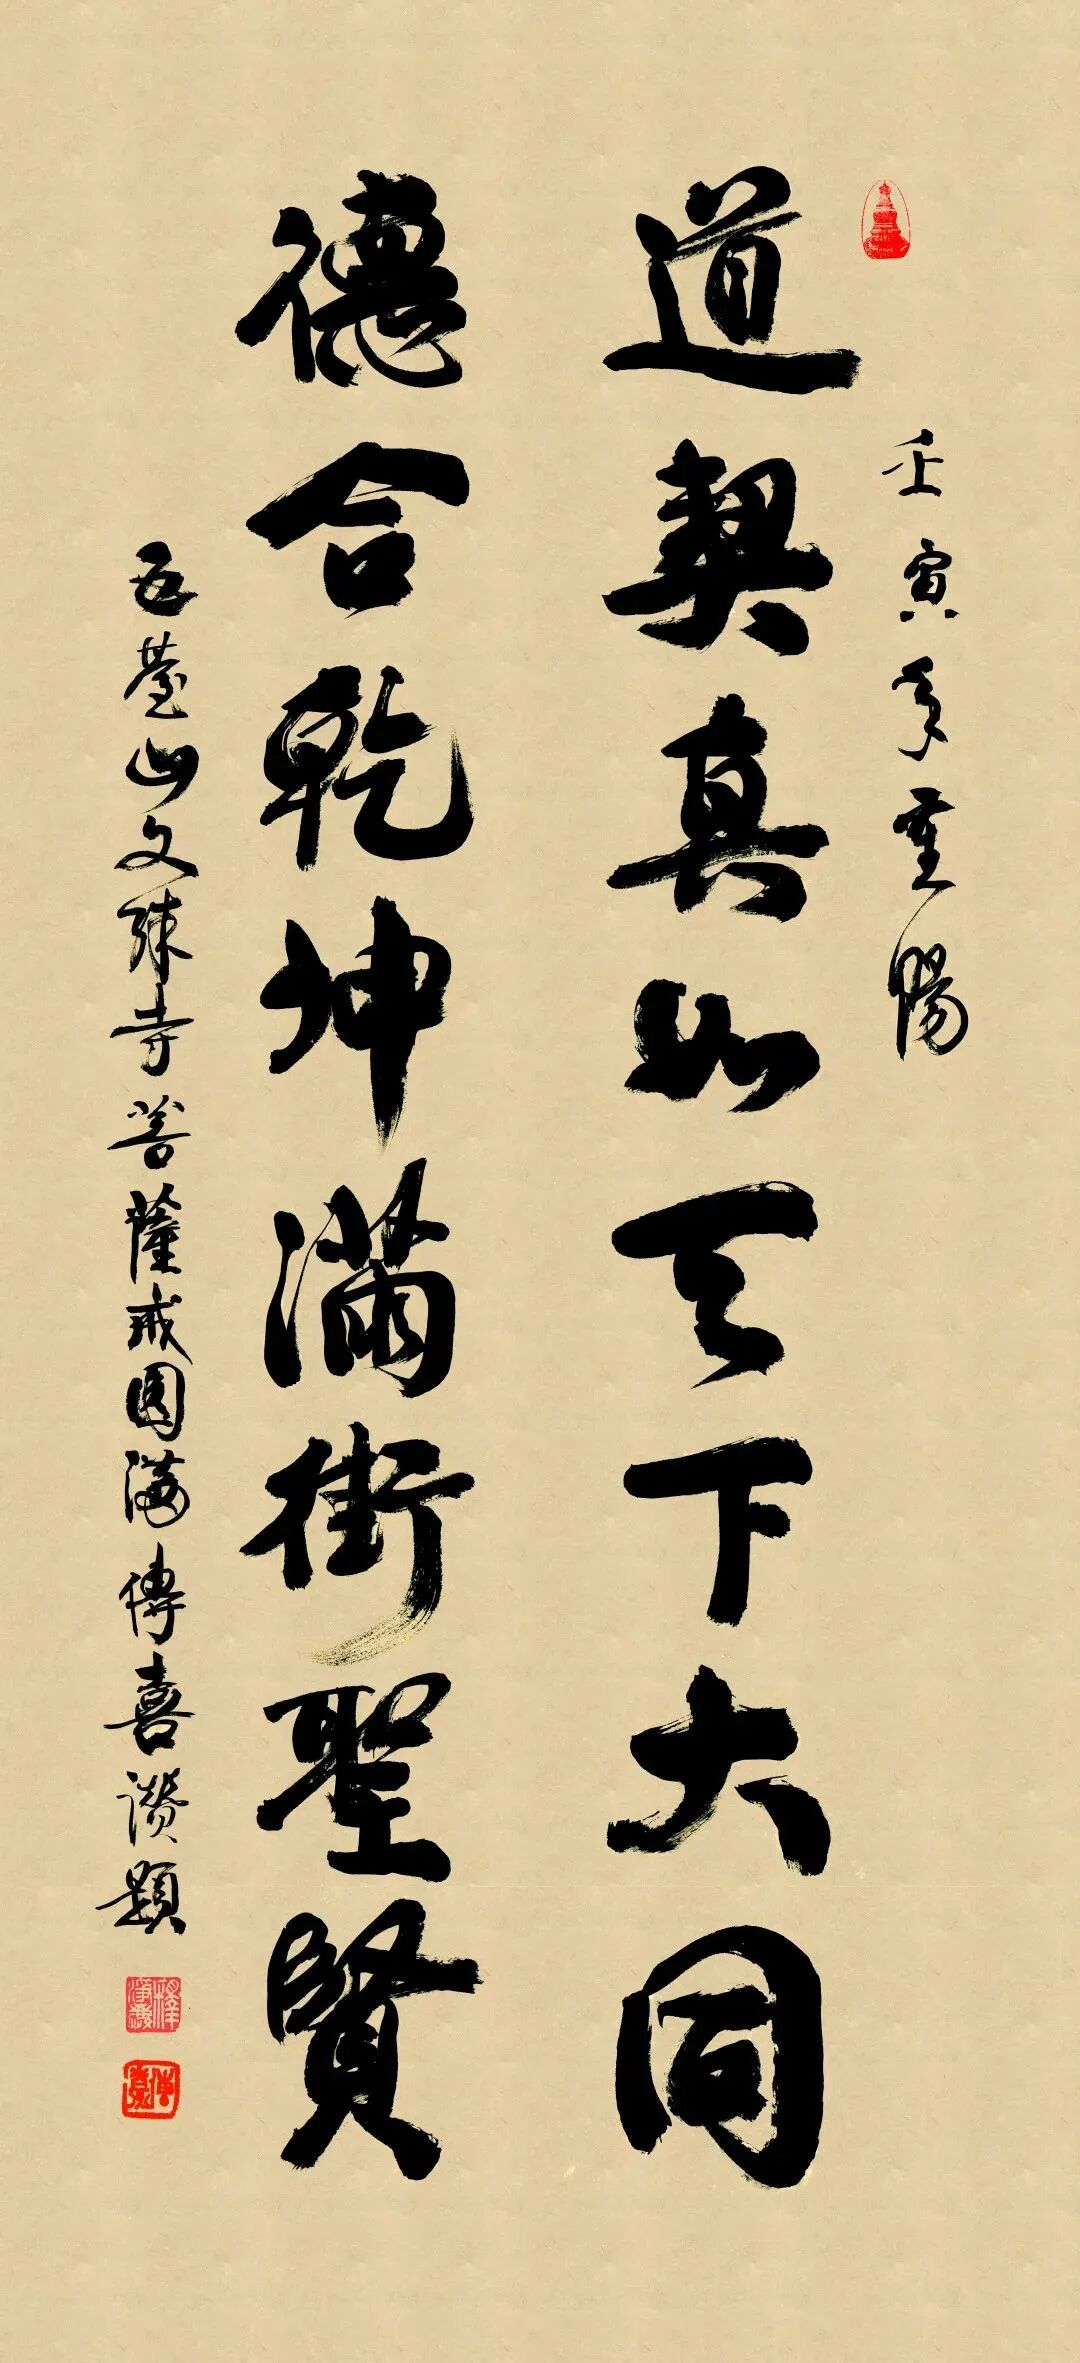 壬寅年重陽
道契真如天下大同
德合乾坤滿街聖賢
五臺山文殊寺菩薩戒圓滿傳喜讚題
傳喜